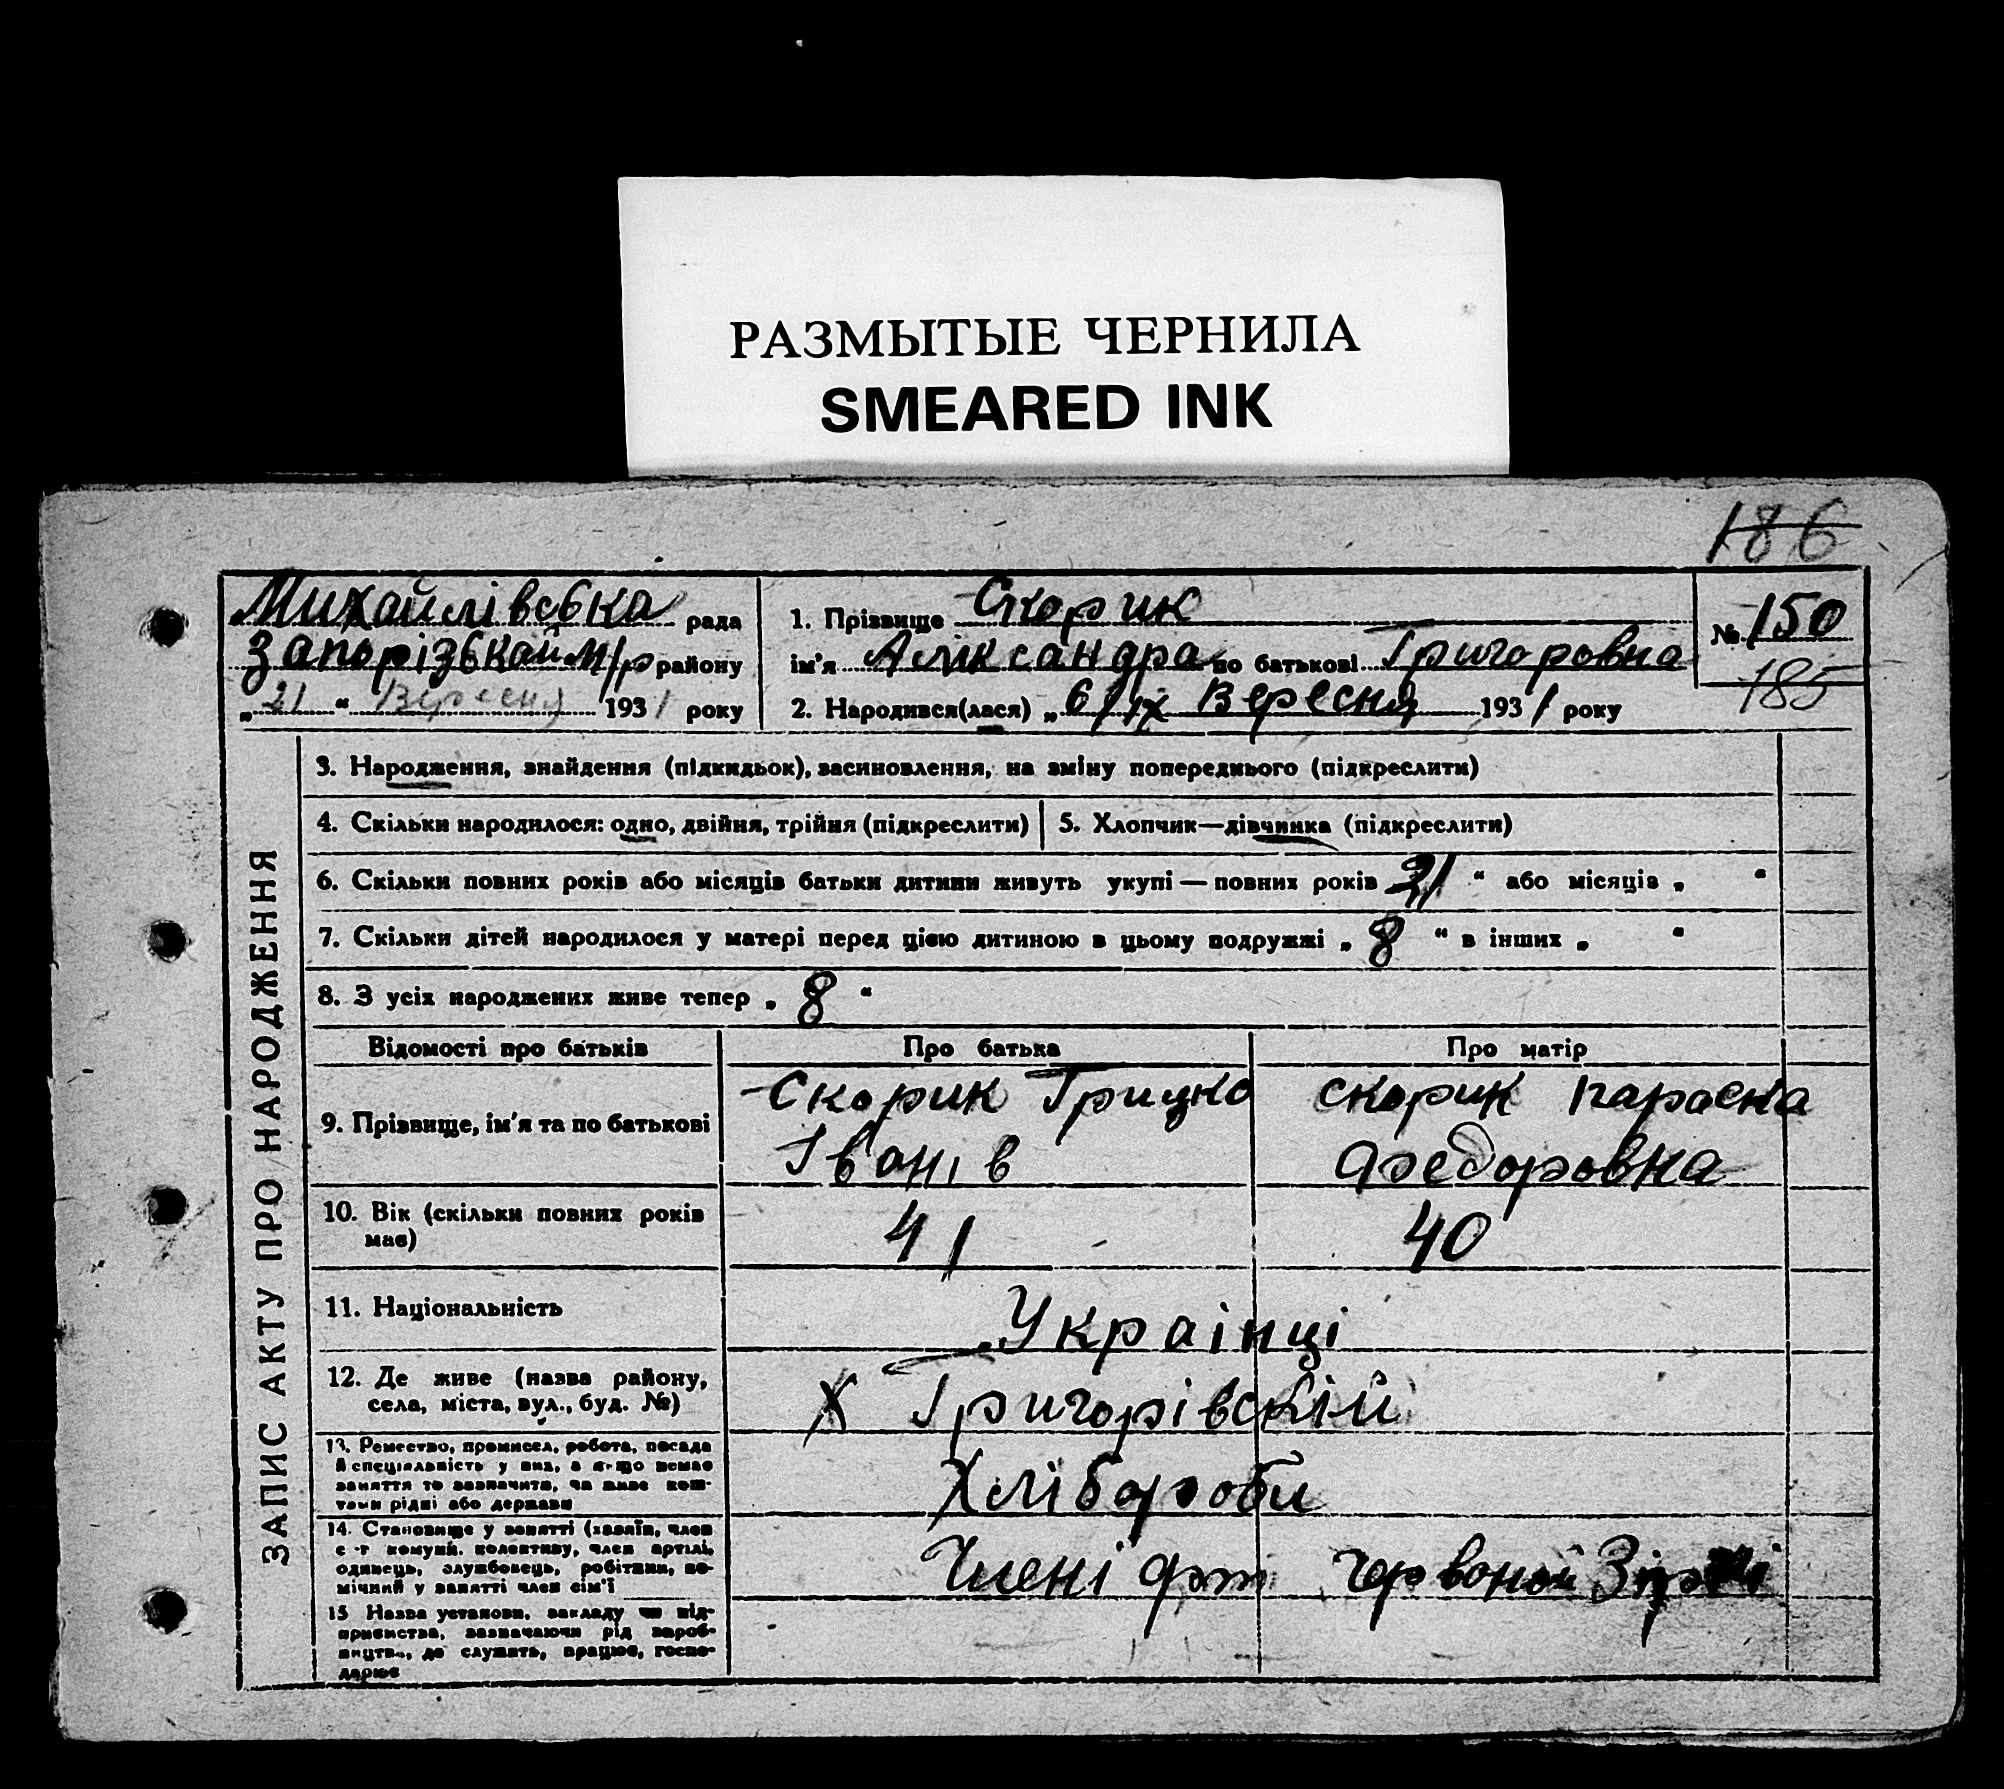 РАЗМЫТЫЕ ЧЕРНИЛА
SMEARED INK
186
Михайлівська рада
Запорізькай м/р району
„21“ Вересня 1931 року
1. Прізвище Скорик
ім'я Аліксандра по батькові Григоровна
2. Народився(лася) „6/ІХ Вересня 1931 року
№ 150
185
ЗАПИС АКТУ ПРО НАРОДЖЕННЯ
3. Народження, знайдення (підкидьок), засиновлення, на зміну попереднього (підкреслити)
4. Скільки народилося: одно, двійня, трійня (підкреслити)
5. Хлопчик—дівчинка (підкреслити)
6. Скільки повних років або місяців батьки дитини живуть укупі — повних років 21 “ або місяців „ “
7. Скільки дітей народилося у матері перед цією дитиною в цьому подружжі „ 8 “ в інших „ “
8. З усіх народжених живе тепер „ 8 “
Відомості про батьків
Про батька
Про матір
9. Прізвище, ім'я та по батькові
Скорик Грицко
Іванів
скорик параска
Федоровна
10. Вік (скільки повних років
має)
41
40
11. Національність
Українці
12. Де живе (назва району,
села, міста, вул., буд. №)
Х Григорівскій
13. Ремество, промисел, робота, посада
й спеціяльність у них, а якщо немає
заняття то зазначити, чи живе кош-
тами рідні або держави
Хлібороби
14. Становище у занятті (хазяїн, член
с.-г комуни. колективу, член артілі,
одинець, службовець, робітник, по-
мічний у занятті член сім'ї
Члені арт Червоной Зірки
15 Назва установи, закладу чи під-
приємства, зазначаючи рід вироб-
ництва, де служить, працює, госпо-
дарює